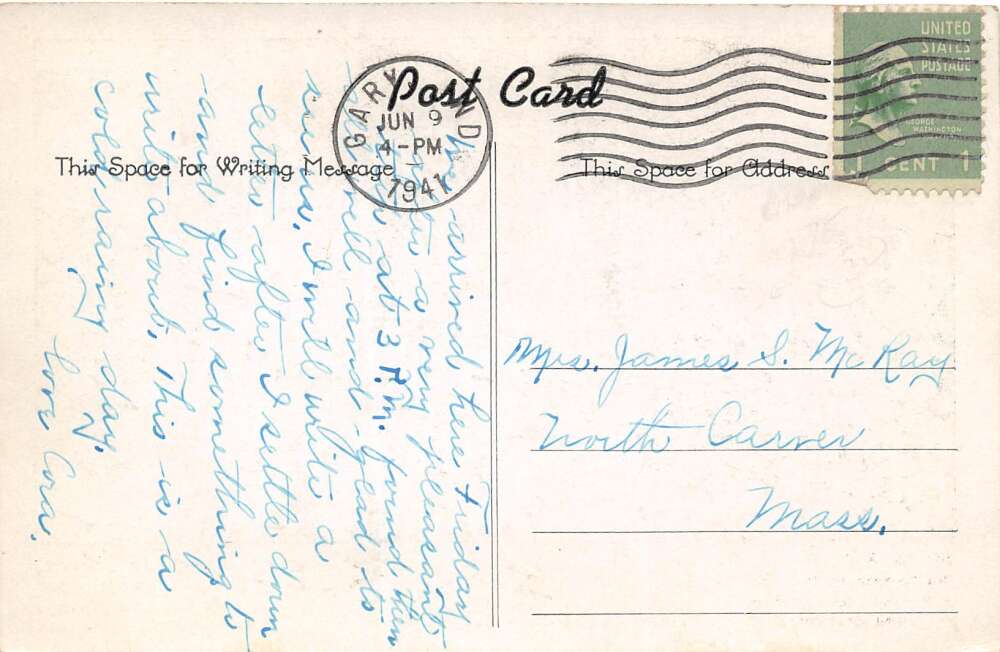 Post Card
GARY IND
JUN 9
4-PM
1941
UNITED
STATES
POSTAGE
GEORGE
WASHINGTON
1 CENT 1
This Space for Writing Message
This Space for Address
arrived here Friday
after a very pleasant
at 3 P.M. found them
well and glad to
us. I will write a
letter after I settle down
and find something to
write about. This is a
cold rainy day.
Love Cora.
Mrs. James S. McKay
North Carver
Mass.